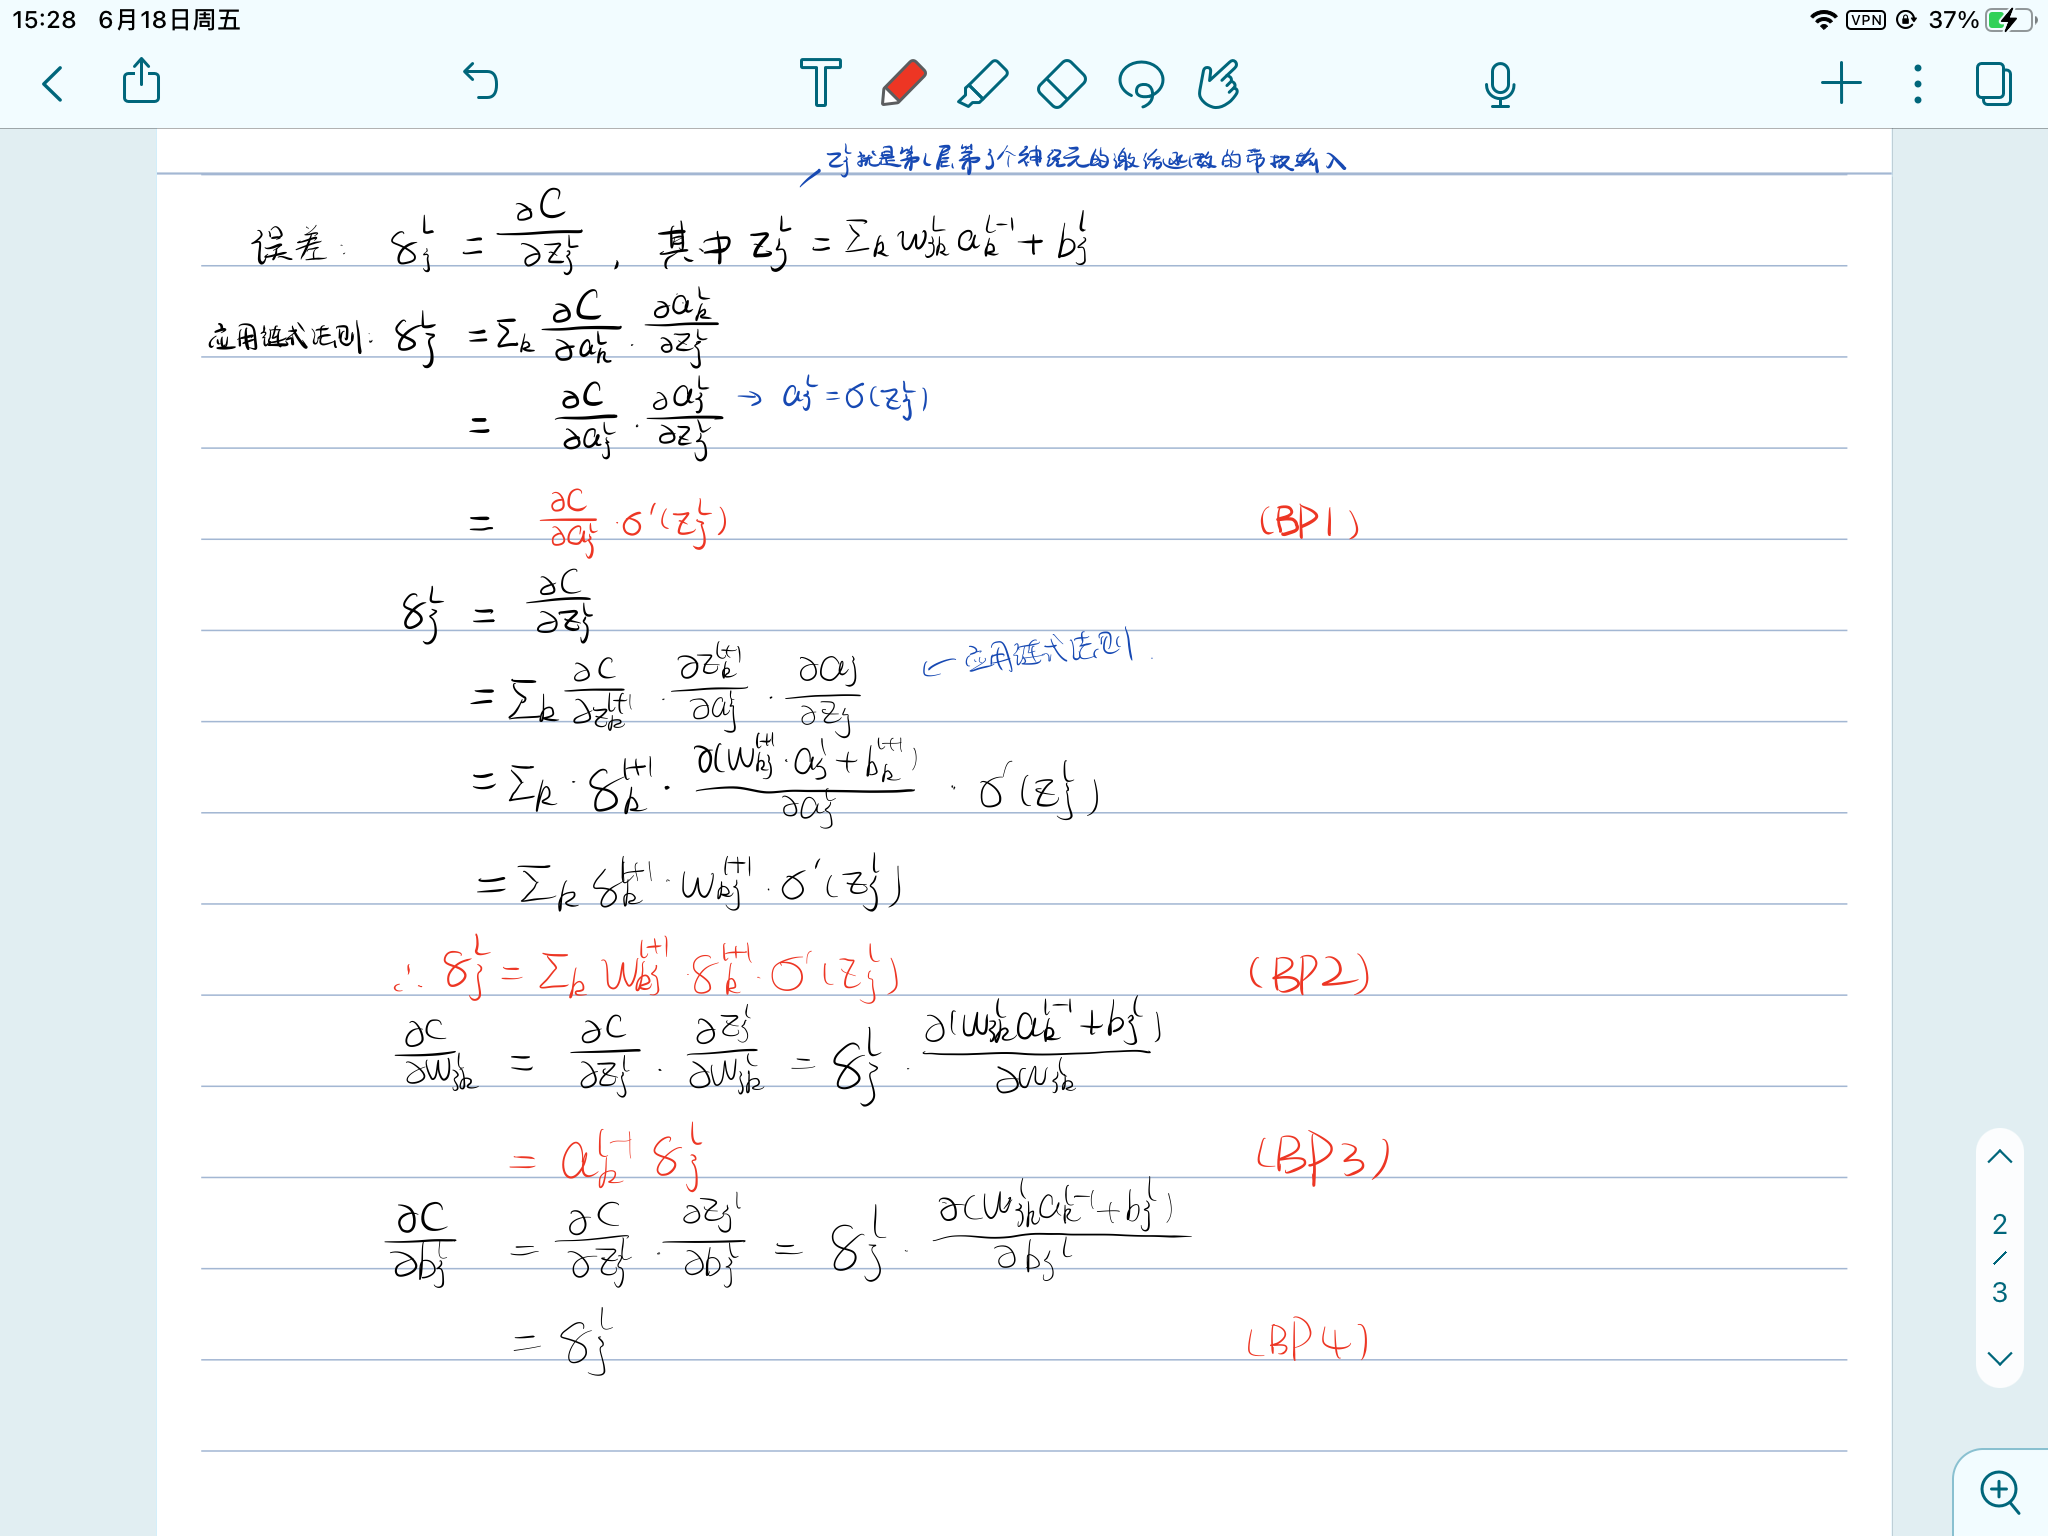 15:28 6月18日周五 VPN 37%
z_j^l就是第l层第j个神经元的激活函数的带权输入
误差: δ_j^L = ∂C/∂z_j^L , 其中 z_j^L = Σ_k w_jk^L a_k^(L-1) + b_j^L
应用链式法则: δ_j^L = Σ_k ∂C/∂a_k^L · ∂a_k^L/∂z_j^L
= ∂C/∂a_j^L · ∂a_j^L/∂z_j^L → a_j^L = σ(z_j^L)
= ∂C/∂a_j^L · σ'(z_j^L) (BP1)
δ_j^L = ∂C/∂z_j^L
= Σ_k ∂C/∂z_k^(l+1) · ∂z_k^(l+1)/∂a_j^l · ∂a_j/∂z_j ← 应用链式法则.
= Σ_k · δ_k^(l+1) · ∂(w_kj^(l+1) · a_j^l + b_k^(l+1))/∂a_j^l · σ'(z_j^l)
= Σ_k δ_k^(l+1) · w_kj^(l+1) · σ'(z_j^l)
∴ δ_j^l = Σ_k w_kj^(l+1) · δ_k^(l+1) · σ'(z_j^l) (BP2)
∂C/∂w_jk^l = ∂C/∂z_j^l · ∂z_j^l/∂w_jk^l = δ_j^l · ∂(w_jk^l a_k^(l-1) + b_j^l)/∂w_jk^l
= a_k^(l-1) δ_j^l (BP3)
∂C/∂b_j^l = ∂C/∂z_j^l · ∂z_j^l/∂b_j^l = δ_j^l · ∂(w_jk^l a_k^(l-1) + b_j^l)/∂b_j^l
= δ_j^l (BP4)
2
/
3